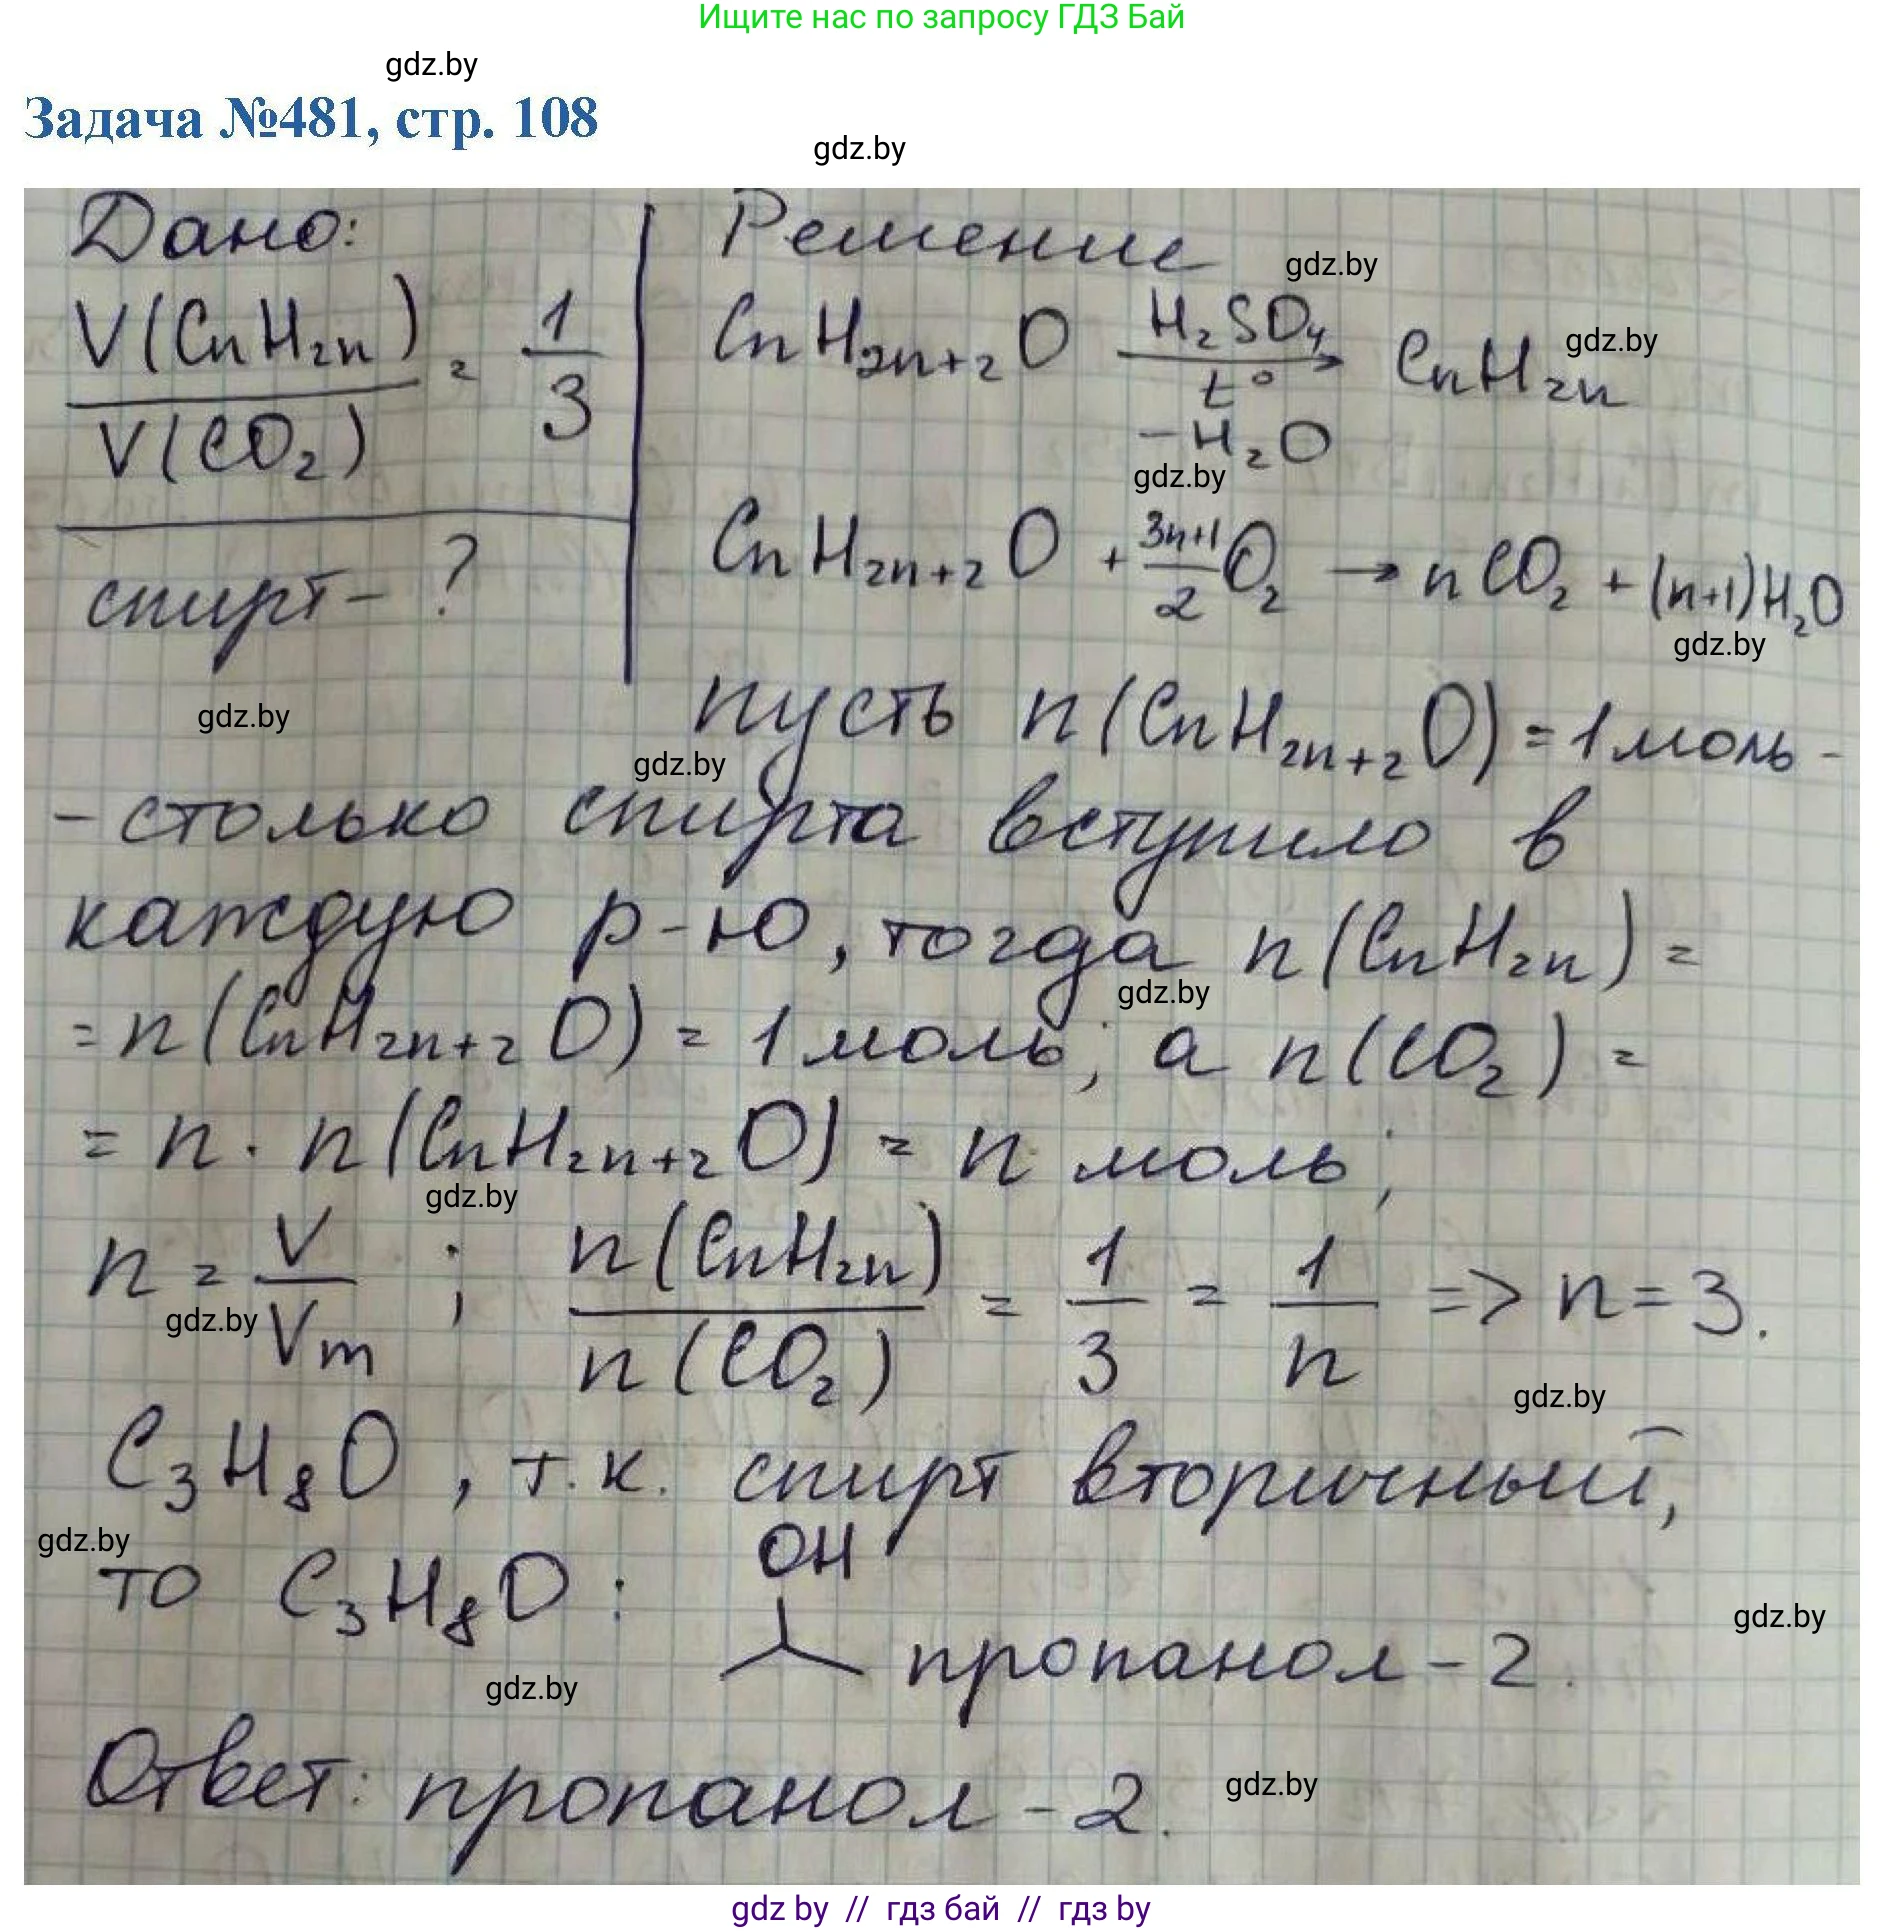 Ищите нас по запросу ГДЗ Бай
gdz.by
Задача №481, стр. 108
gdz.by
Дано:
V(CnH2n) / V(CO2) = 1/3
спирт - ?
gdz.by
Решение
gdz.by
CnH2n+2O H2SO4 → t° CnH2n
gdz.by
-H2O
gdz.by
CnH2n+2O + 3n+1/2 O2 → nCO2 + (n+1)H2O
gdz.by
пусть n(CnH2n+2O) = 1 моль -
gdz.by
- столько спирта вступило в
каждую р-ю, тогда n(CnH2n) =
gdz.by
= n(CnH2n+2O) = 1 моль; а n(CO2) =
= n · n(CnH2n+2O) = n моль;
gdz.by
n = V/Vm ; n(CnH2n) / n(CO2) = 1/3 = 1/n => n = 3.
gdz.by
gdz.by
C3H8O, т.к. спирт вторичный,
gdz.by
OH
то C3H8O: пропанол-2.
gdz.by
gdz.by
Ответ: пропанол-2.
gdz.by
gdz by // гдз бай // гдз by